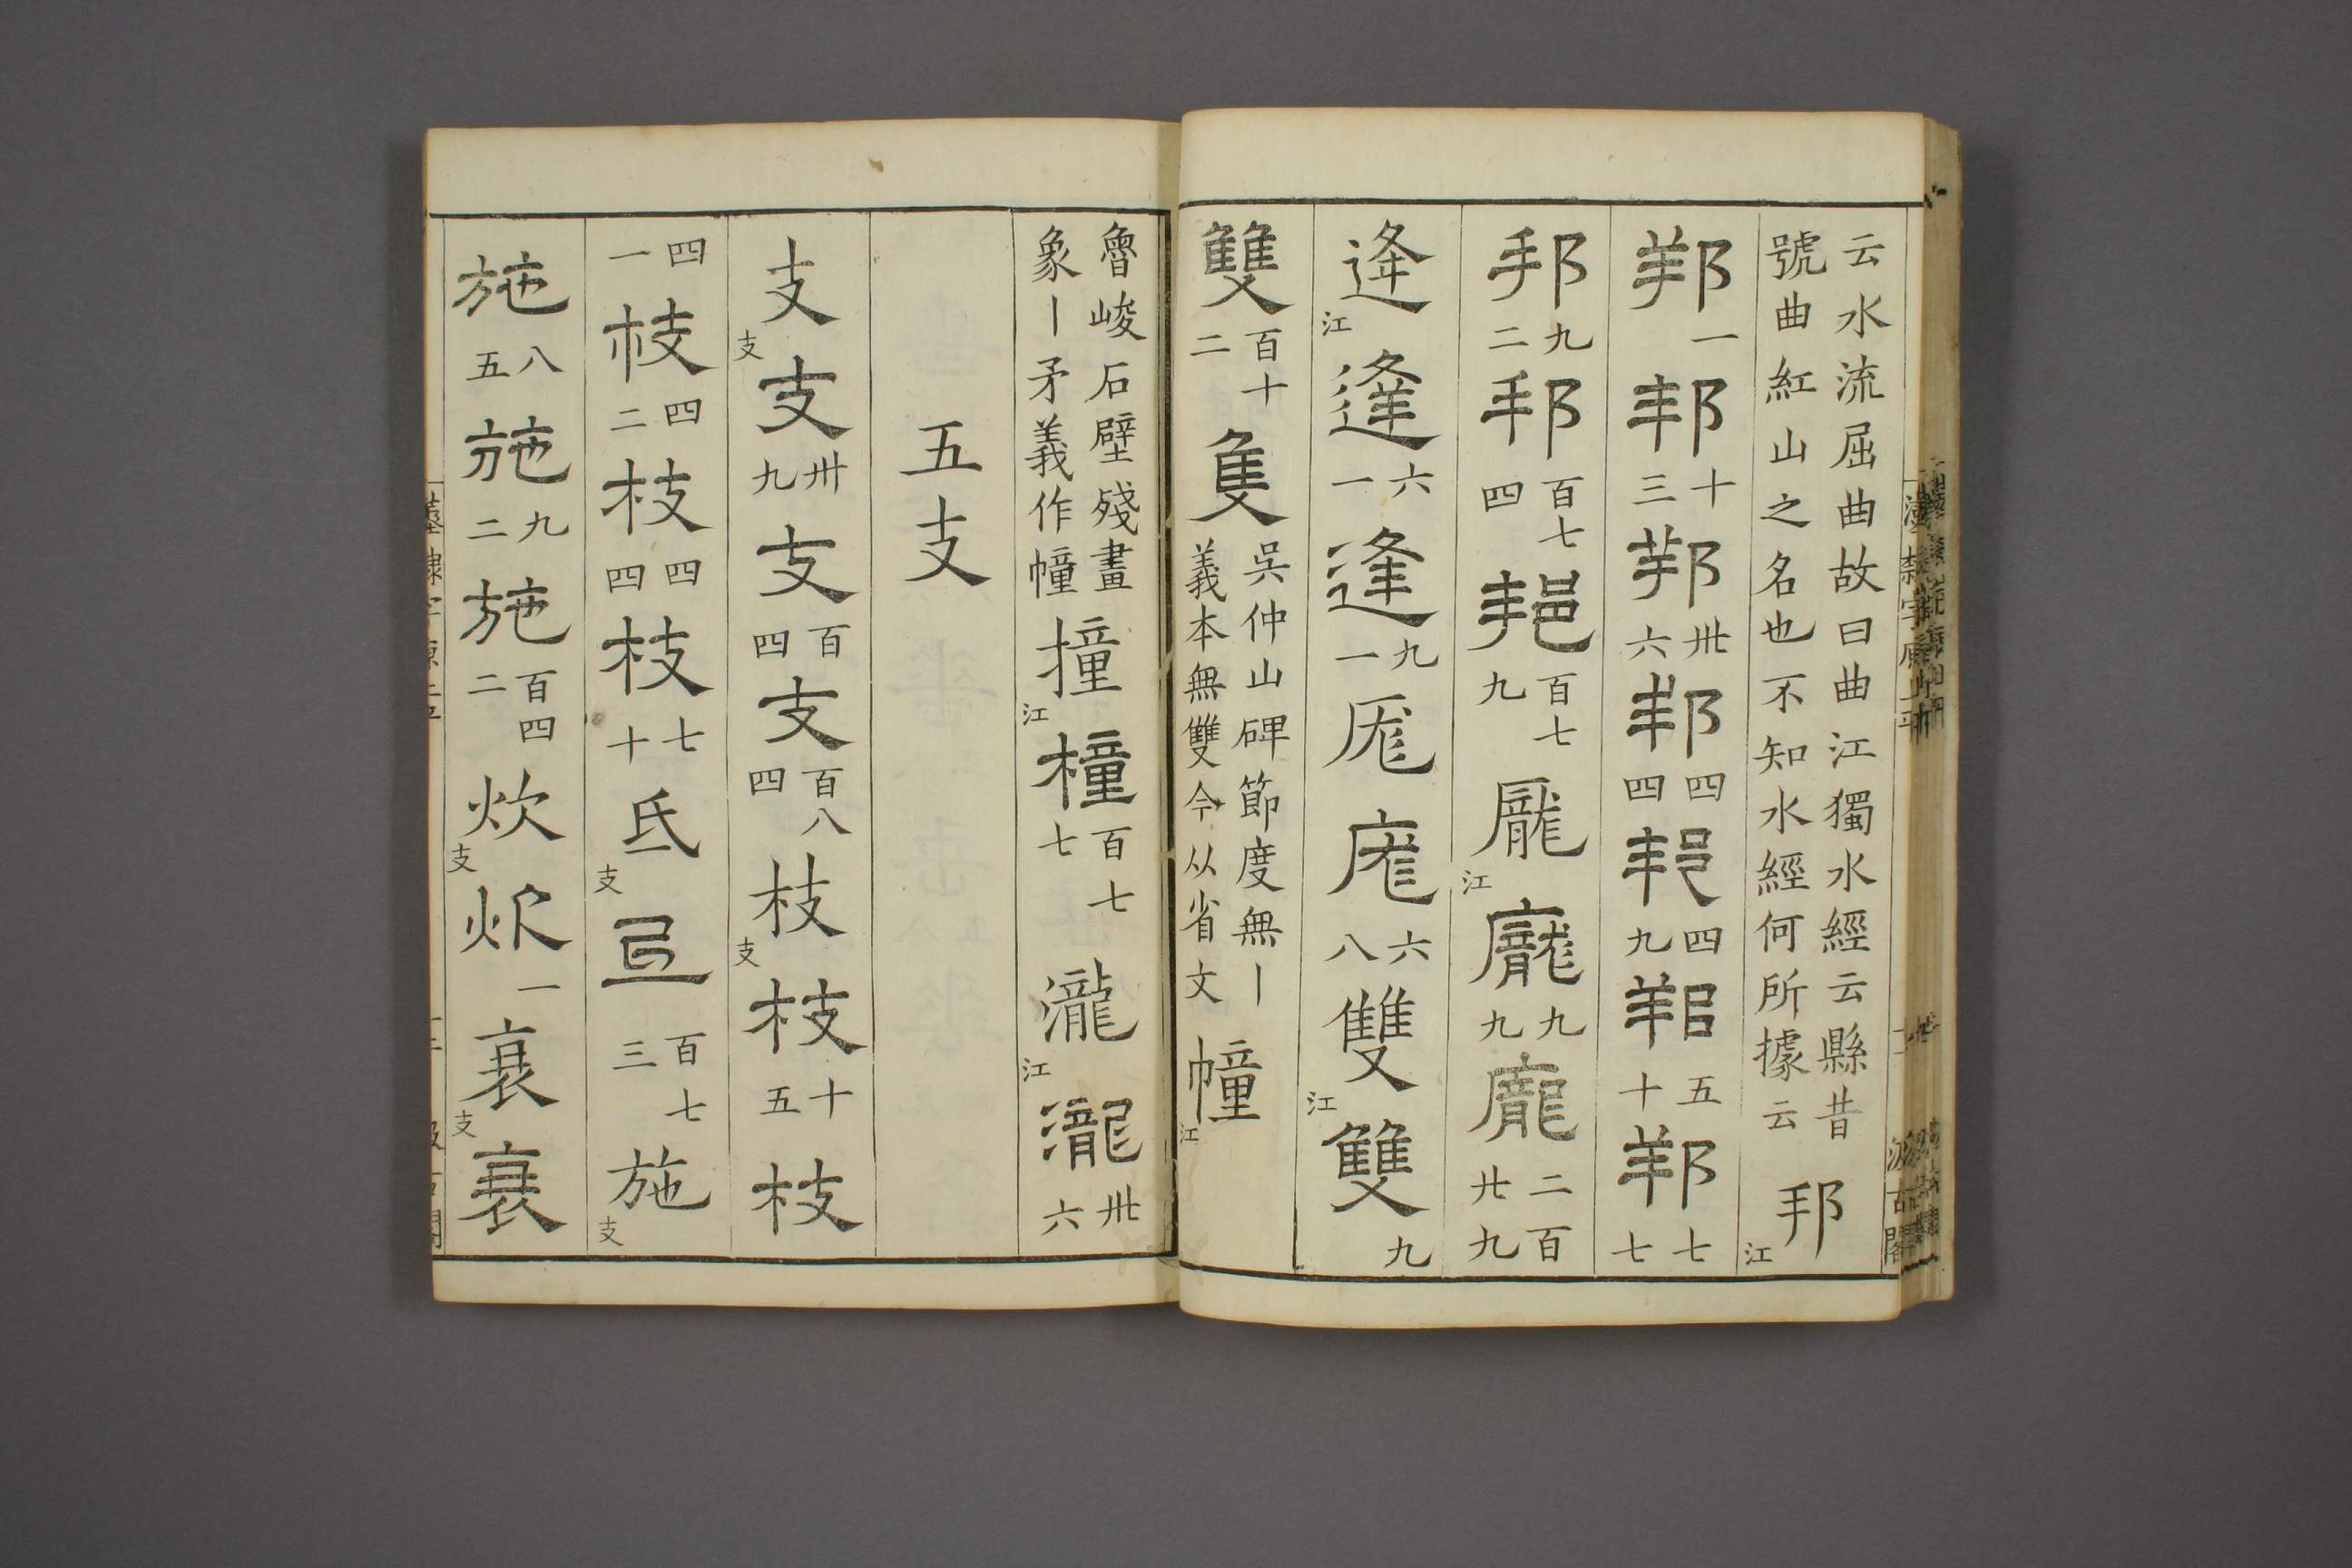 云水流屈曲故曰曲江獨水經云縣昔
號曲紅山之名也不知水經何所據云
邦江
邦一邦十三邦卅六邦四四邦四九邦五十邦七七
邦九二邦百七四邦百七九龎江龎九九龎二百廿九
逄江逢六一逢九一厖庬六八雙江雙九
雙百十二隻吳仲山碑節度無丨
義本無雙今从省文
幢江
魯峻石壁殘畫
象丨矛義作幢
撞江橦百七七瀧江瀧卅六
五支
支支支卅九支百四支百八四枝支枝十五枝
四一枝四二枝四四枝七十氐支𢎨百七三施支
施八五施九二施百四二炊支炊一衰支衰
漢隸字源上平
汲古閣